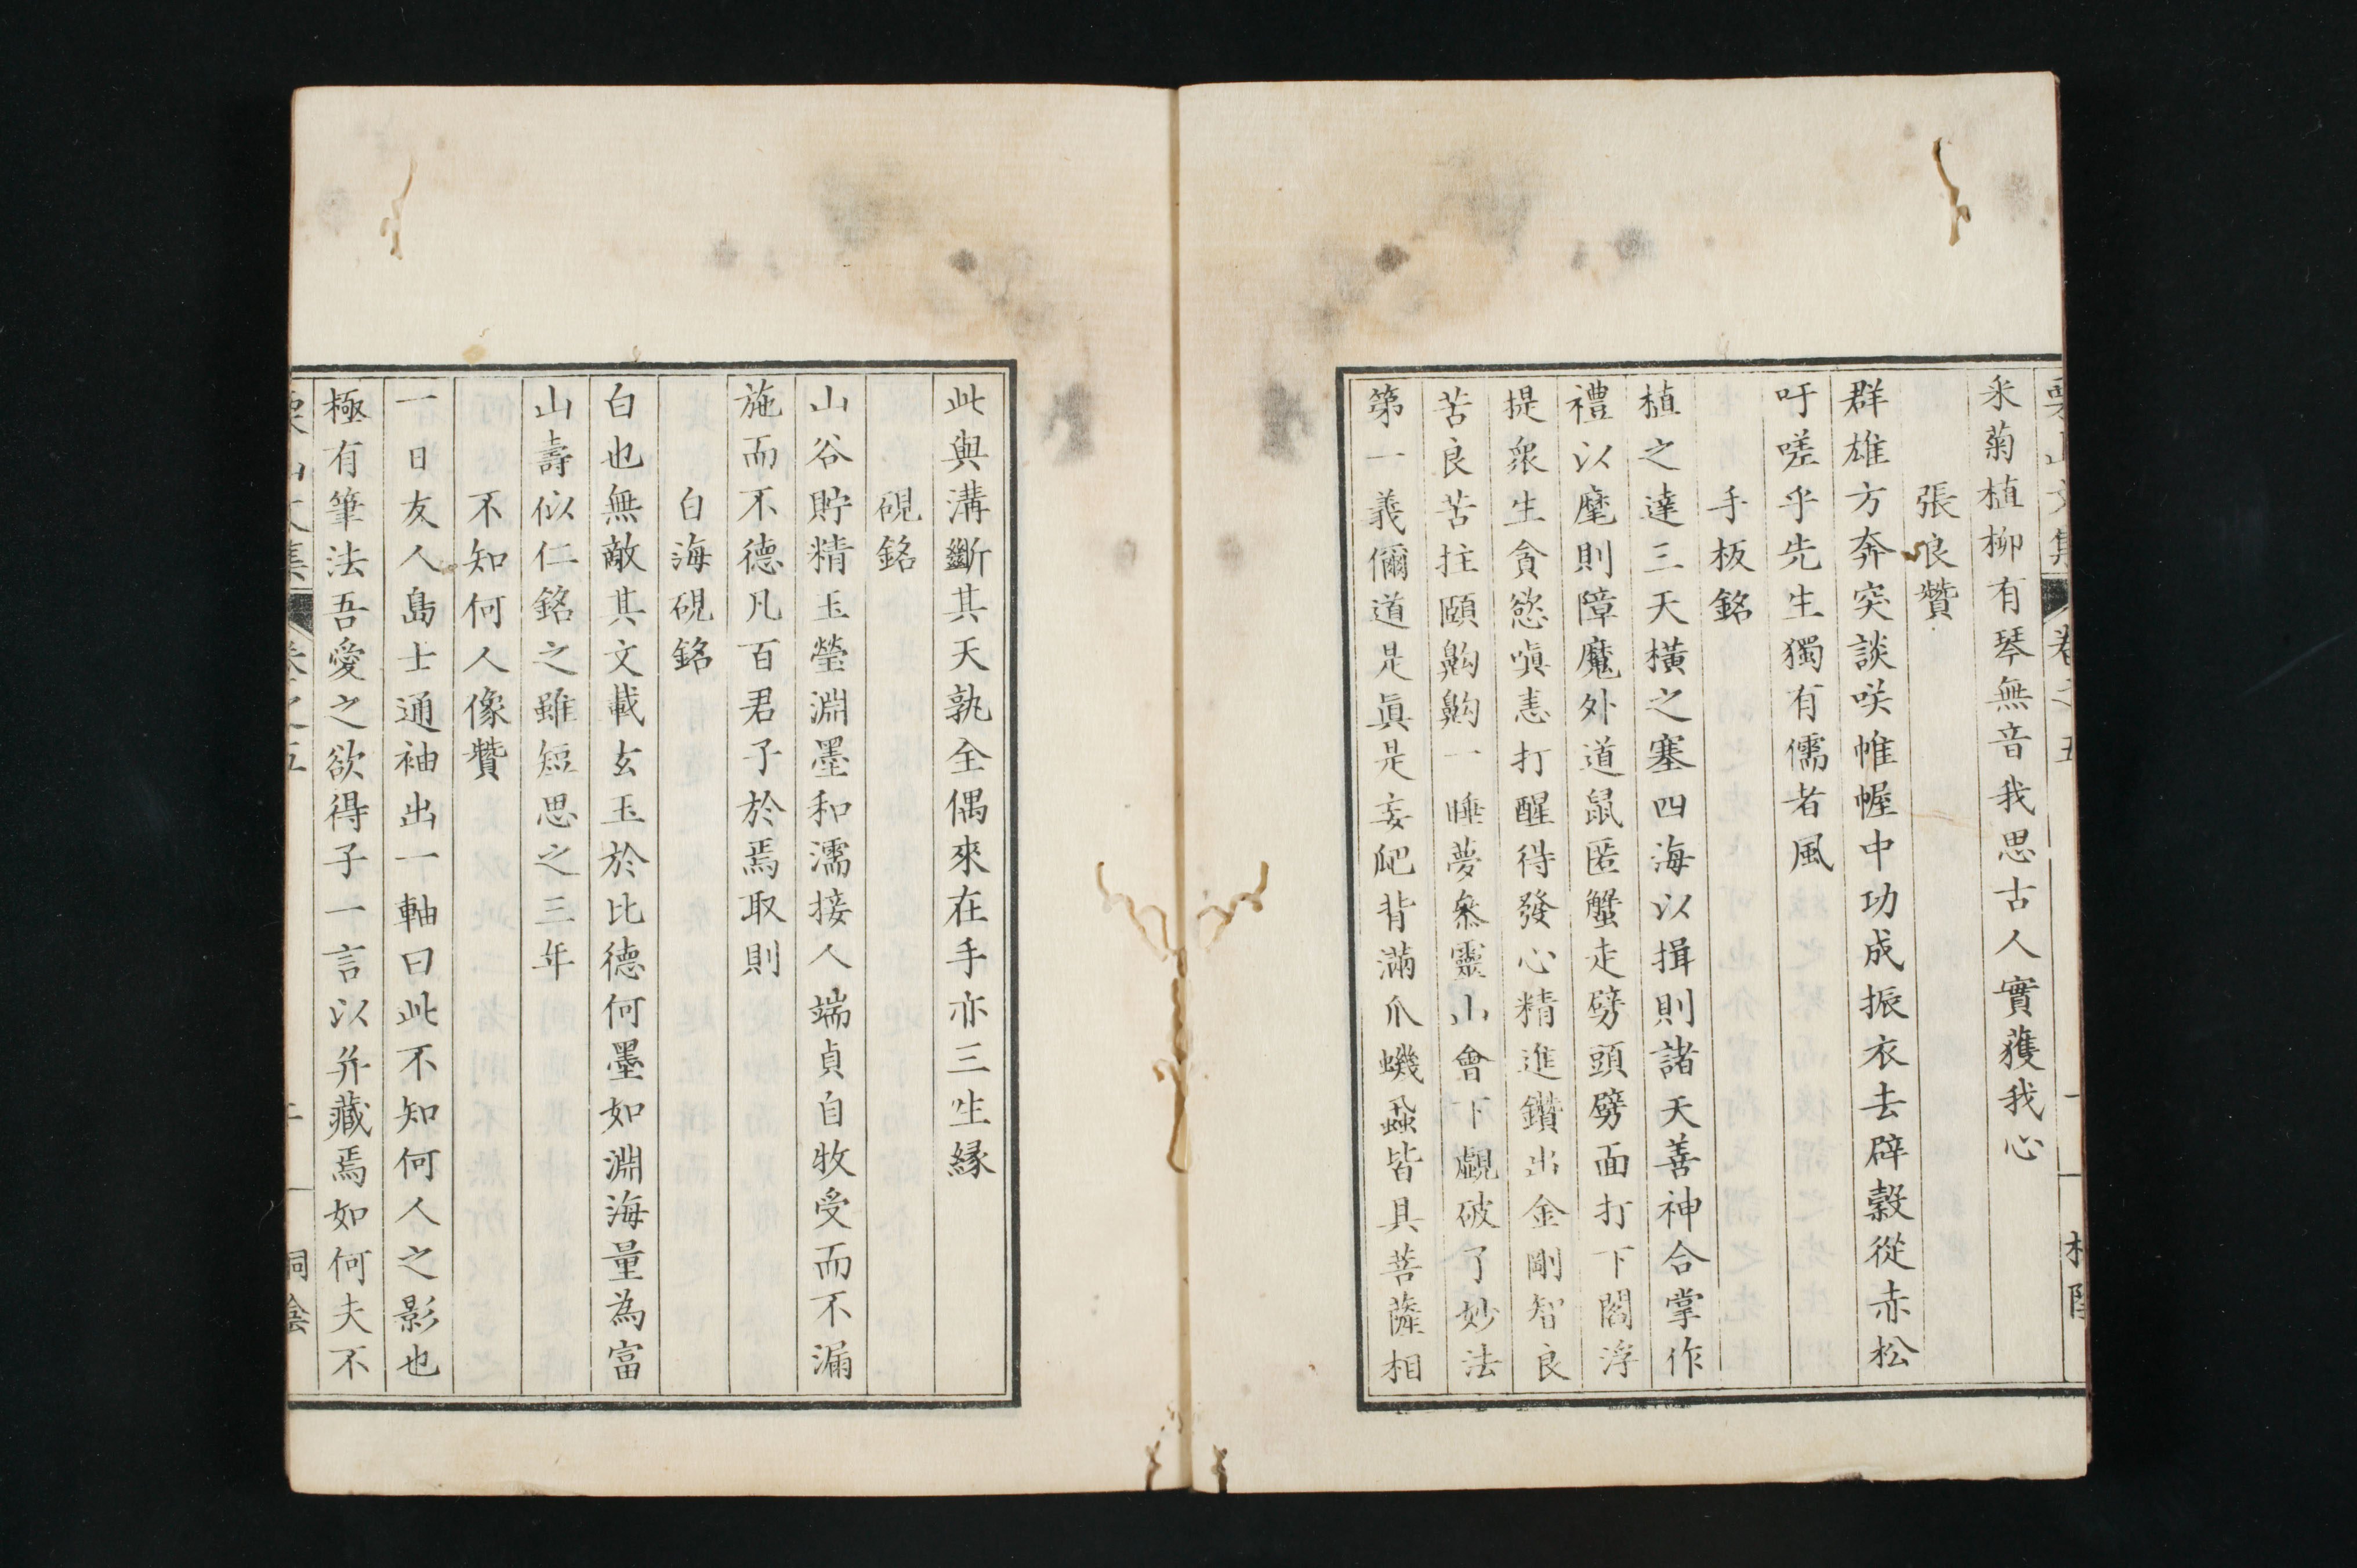 栗山文集 卷之五
采菊植柳有琴無音我思古人實獲我心
張良贊
群雄方奔突談咲帷幄中功成振衣去辟穀從赤松
吁嗟乎先生獨有儒者風
手板銘
植之達三天橫之塞四海以揖則諸天善神合掌作
禮以麾則障魔外道鼠匿蟹走劈頭劈面打下閻浮
提衆生貪慾嗔恚打醒待發心精進鑽出金剛智良
苦良苦拄頤齁齁一睡夢叅靈山會下覷破了妙法
第一義儞道是眞是妄爬背滿爪蟣蝨皆具菩薩相
此與溝斷其天孰全偶來在手亦三生緣
硯銘
山谷貯精玉瑩淵墨和濡接人端貞自牧受而不漏
施而不德凡百君子於焉取則
白海硯銘
白也無敵其文載玄玉於比德何墨如淵海量為富
山壽似仁銘之雖短思之三年
不知何人像贊
一日友人島士通袖出一軸曰此不知何人之影也
極有筆法吾愛之欲得子一言以弁藏焉如何夫不
栗山文集 卷之五